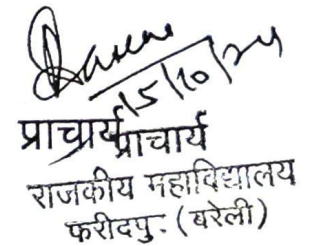 15/10/24
प्राचार्य प्राचार्य
राजकीय महाविद्यालय
फरीदपु. (बरेली)